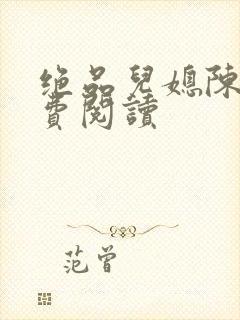 绝品兒媳陳
費閱讀
范曾